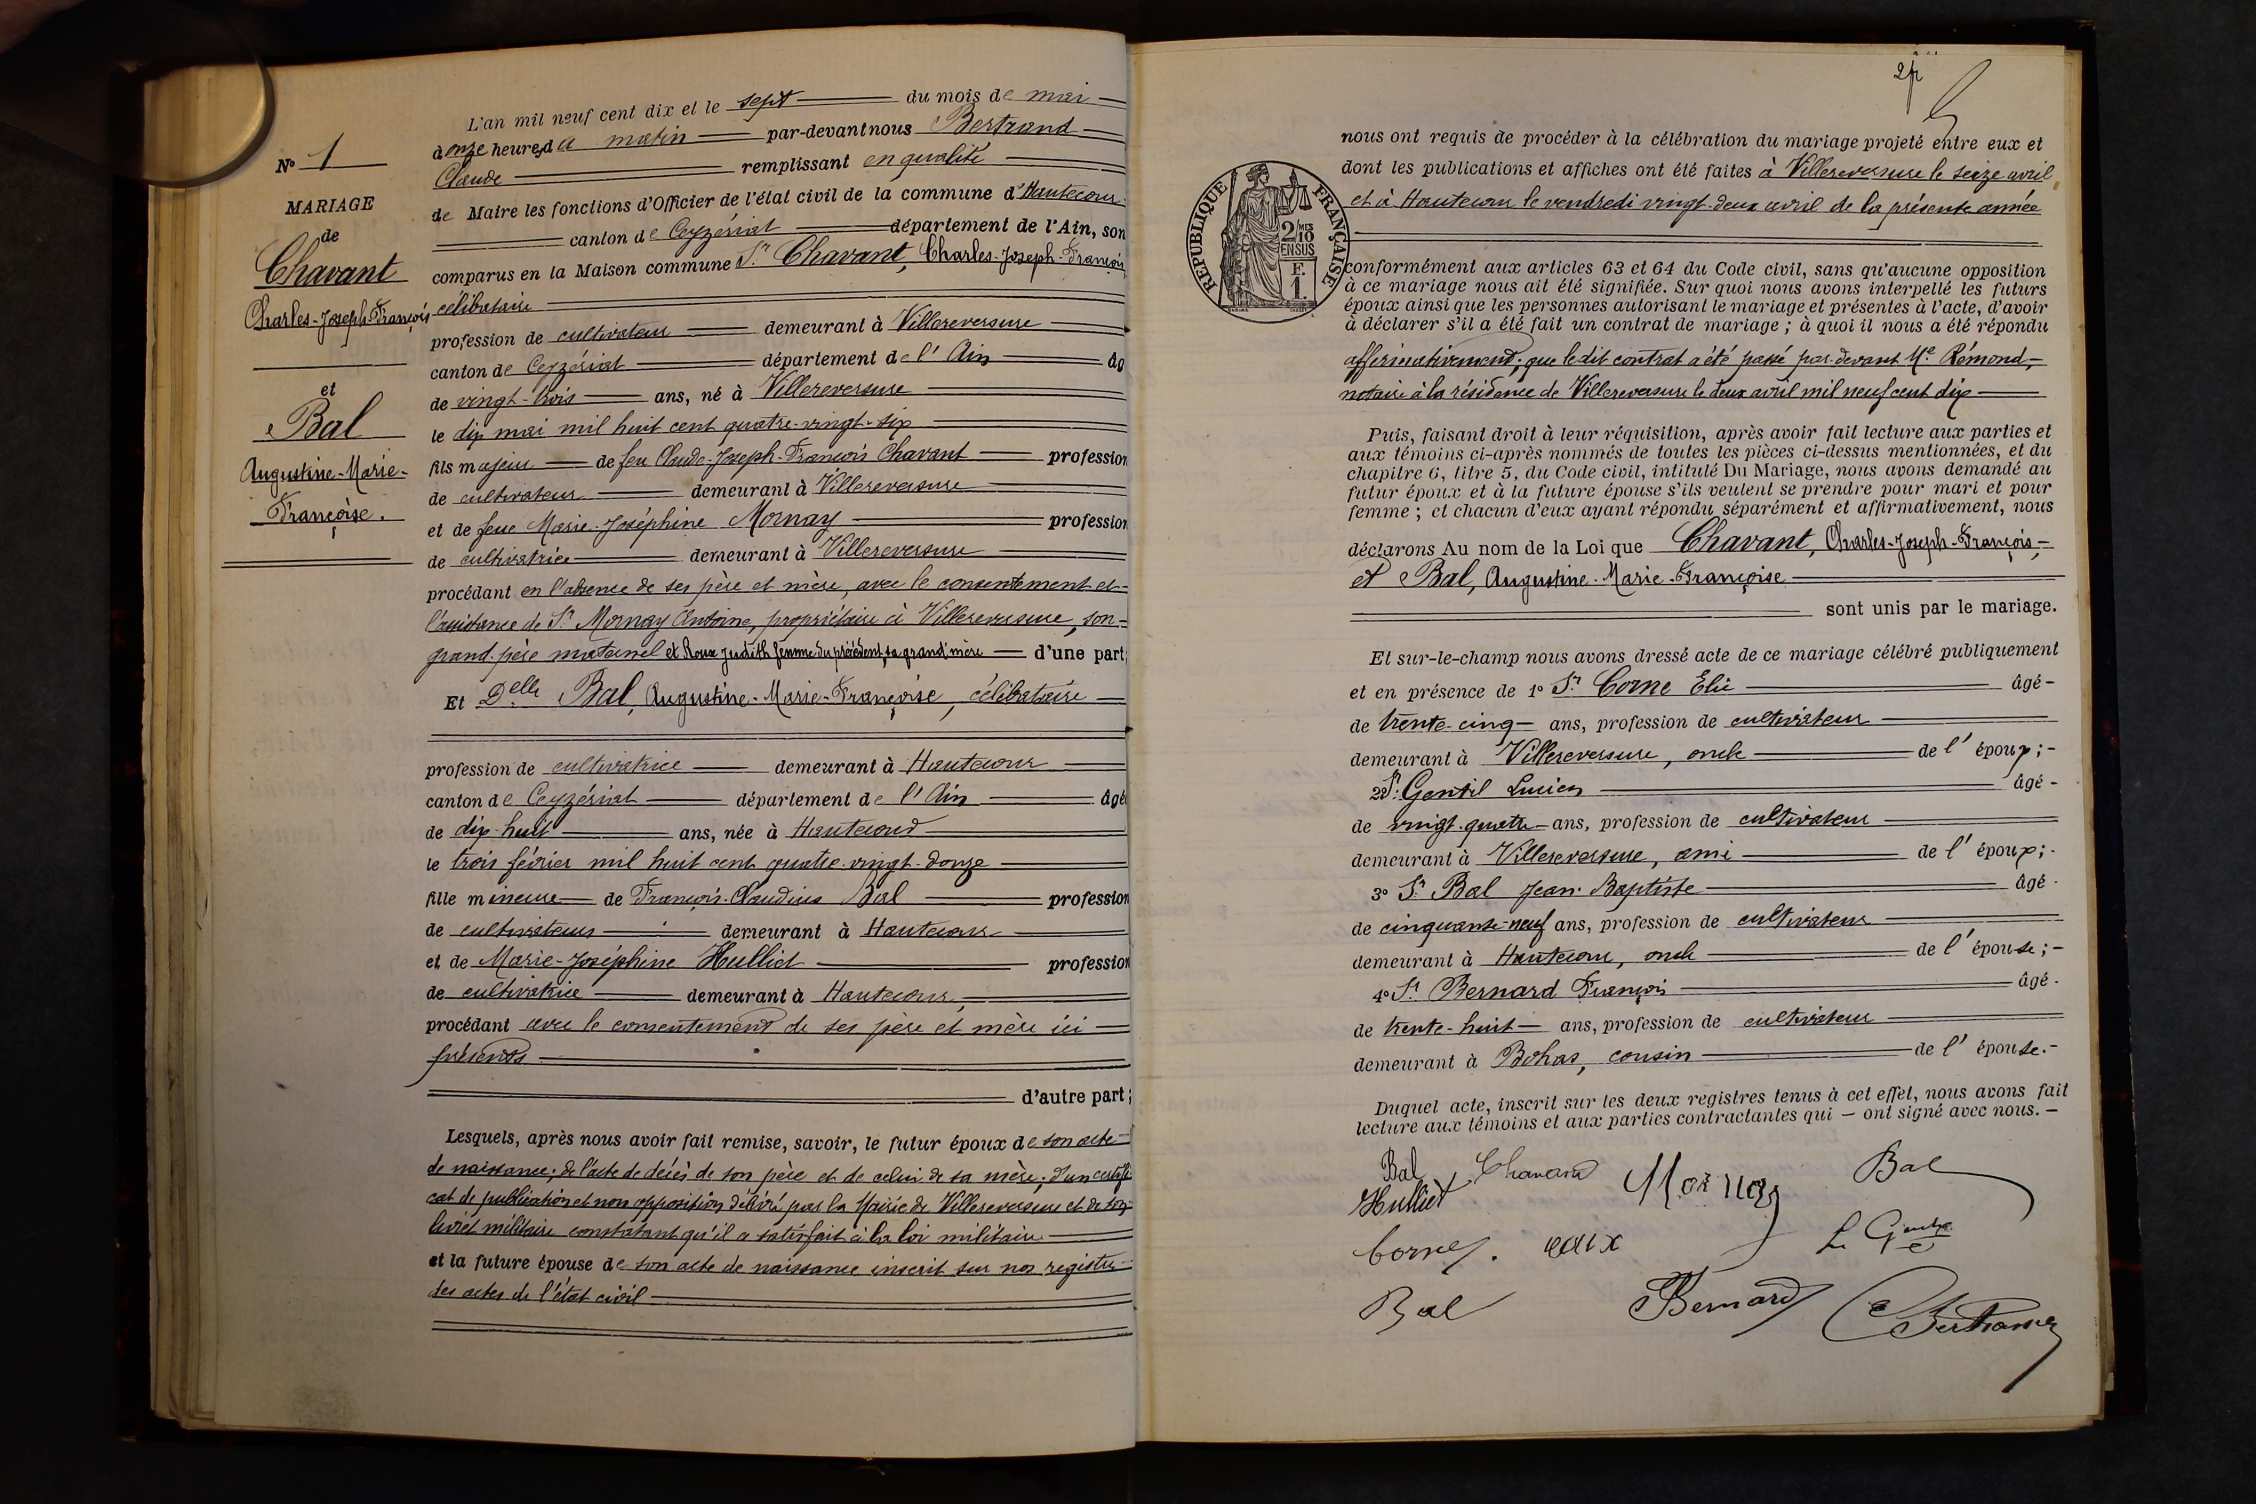 N° 1
MARIAGE
de
Chavant
Charles-Joseph-François
et
Bal
Augustine-Marie-
Françoise.
L'an mil neuf cent dix et le sept du mois de mai
à onze heures du matin par-devant nous Bertrand
Claude remplissant en qualité
de Maire les fonctions d'Officier de l'état civil de la commune d'Hautecour
canton de Ceyzériat département de l'Ain, son
comparus en la Maison commune Sr Chavant, Charles-Joseph-François
célibataire
profession de cultivateur demeurant à Villereversure
canton de Ceyzériat département de l'Ain âg
de vingt-trois ans, né à Villereversure
le dix mai mil huit cent quatre-vingt-six
fils majeur de feu Claude-Joseph-François Chavant profession
de cultivateur demeurant à Villereversure
et de feue Marie-Joséphine Mornay profession
de cultivatrice demeurant à Villereversure
procédant en l'absence de ses père et mère, avec le consentement et
l'assistance de Sr Mornay Antoine, propriétaire à Villereversure, son
grand-père maternel et Roux Judith femme du précédent, sa grand'mère d'une part
Et Delle Bal, Augustine-Marie-Françoise, célibataire
profession de cultivatrice demeurant à Hautecour
canton de Ceyzériat département de l'Ain âgé
de dix-huit ans, née à Hautecour
le trois février mil huit cent quatre-vingt-douze
fille mineure de François-Claudius Bal profession
de cultivateur demeurant à Hautecour
et de Marie-Joséphine Hulliet profession
de cultivatrice demeurant à Hautecour
procédant avec le consentement de ses père et mère ici
présents
d'autre part;
Lesquels, après nous avoir fait remise, savoir, le futur époux de son acte
de naissance; de l'acte de décès de son père et de celui de sa mère; d'un certifi
cat de publication et non opposition délivré par la Mairie de Villereversure et de son
livret militaire constatant qu'il a satisfait à la loi militaire
et la future épouse de son acte de naissance inscrit sur nos registres
des actes de l'état civil
2
nous ont requis de procéder à la célébration du mariage projeté entre eux et
dont les publications et affiches ont été faites à Villereversure le seize avril
et à Hautecour le vendredi vingt-deux avril de la présente année
REPUBLIQUE FRANÇAISE
2/10 MES
EN SUS
F.
1.
conformément aux articles 63 et 64 du Code civil, sans qu'aucune opposition
à ce mariage nous ait été signifiée. Sur quoi nous avons interpellé les futurs
époux ainsi que les personnes autorisant le mariage et présentes à l'acte, d'avoir
à déclarer s'il a été fait un contrat de mariage; à quoi il nous a été répondu
affirmativement; que ledit contrat a été passé par-devant Me Rémond,
notaire à la résidence de Villereversure le deux avril mil neuf cent dix
Puis, faisant droit à leur réquisition, après avoir fait lecture aux parties et
aux témoins ci-après nommés de toutes les pièces ci-dessus mentionnées, et du
chapitre 6, titre 5, du Code civil, intitulé Du Mariage, nous avons demandé au
futur époux et à la future épouse s'ils veulent se prendre pour mari et pour
femme; et chacun d'eux ayant répondu séparément et affirmativement, nous
déclarons Au nom de la Loi que Chavant, Charles-Joseph-François-
et Bal, Augustine-Marie-Françoise
sont unis par le mariage.
Et sur-le-champ nous avons dressé acte de ce mariage célébré publiquement
et en présence de 1° Sr Corne Élie âgé
de trente-cinq ans, profession de cultivateur
demeurant à Villereversure, oncle de l'époux;
2° Sr Gentil Lucien âgé
de vingt-quatre ans, profession de cultivateur
demeurant à Villereversure, ami de l'époux;
3° Sr Bal Jean-Baptiste âgé
de cinquante-neuf ans, profession de cultivateur
demeurant à Hautecour, oncle de l'épouse;
4° Sr Bernard François âgé
de trente-huit ans, profession de cultivateur
demeurant à Bohas, cousin de l'épouse.
Duquel acte, inscrit sur les deux registres tenus à cet effet, nous avons fait
lecture aux témoins et aux parties contractantes qui — ont signé avec nous. —
Bal Chavant Mornay Bal
Hulliet
Corne. roux
Bal Bernard C Bertrand